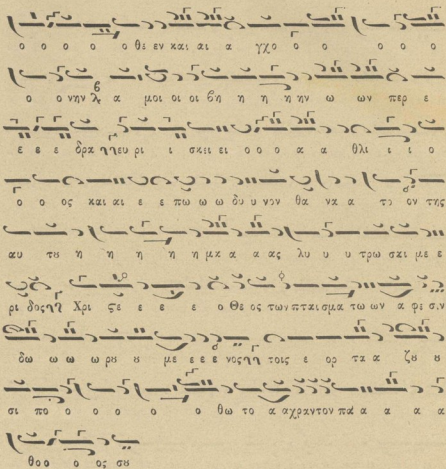 ο ο ο ο ο θε εν και αι α γχο ο ο ο ο ο
ο ο νην λ α μοι οι οι βη η η η ην ω ων περ ε
ε ε ε δρα ϟϟ ευ ρι ι σκει ει ο ο α α θλι ι ι ο
ο ο ος και αι ε ε πω ω ω δυ υ νον θα να α το ον της
αυ τȣ η η η η μα α α ας λυ υ υ τρω σκι με ε
ρι δος ϟϟ Χρι ϛε ε ε ε ο Θε ος των πται σμα τω ων α φε σιν
δω ω ω ω ρȣ ȣ με ε ε ε νος ϟϟ τοις ε ορ τα α ζȣ ȣ
σι πο ο ο ο ο ο θω το α α χραν τον πα α α α α
θοο ο ο ος σȣ